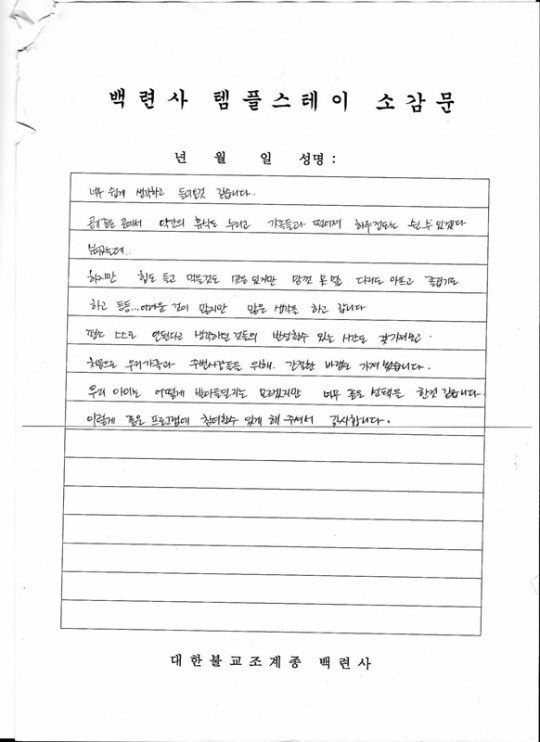 백련사 템플스테이 소감문
년 월 일 성명 :
너무 쉽게 생각하고 들어온것 같습니다.
공기좋은 곳에서 약간의 휴식도 누리고 가족들과 떨어져 하루정도는 쉴 수 있겠다
하지만 힘도 들고 먹을것도 많은 있지만 맘껏 못 먹 다리도 아프고 졸립기도
하고 등등...어려운 것이 많지만 많은 생각을 하고 갑니다
평소 스스로 안된다고 생각하던 것들의 반성할수 있는 시간도 갖게되었고
처음으로 우리가족과 주변사람들을 위해. 간절한 바램도 가져 보았습니다.
우리 아이는 어떻게 받아들일지는 모르겠지만 너무 좋은 선택을 한것 같습니다
이렇게 좋은 프로그램에 참여할수 있게 해 주셔서 감사합니다.
대한불교조계종 백련사